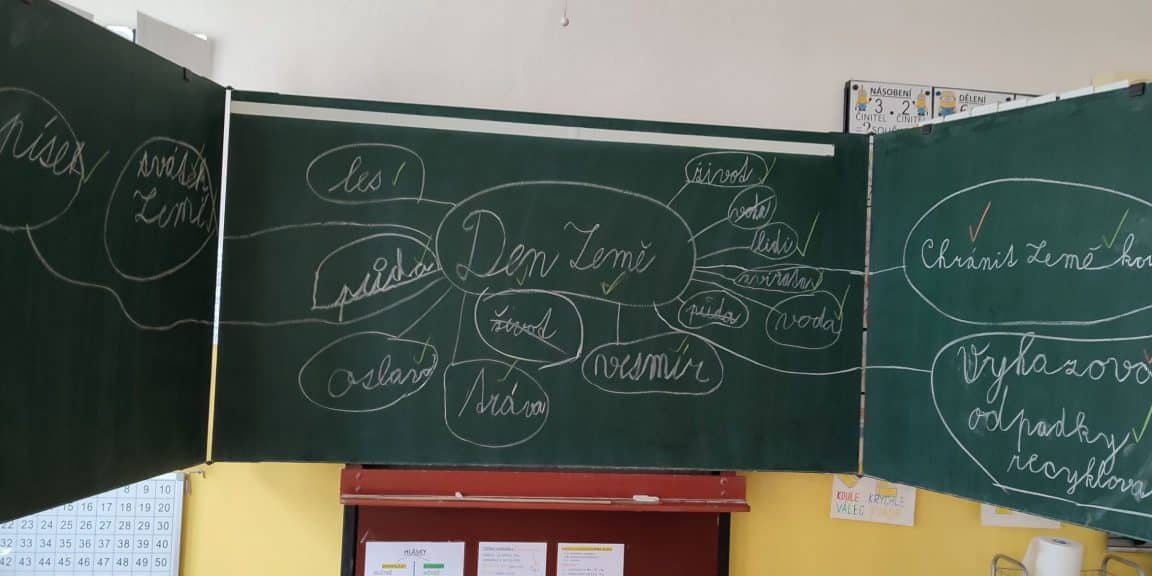 písek
svátek
Země
les
půda
oslava
Den Země
život
tráva
vesmír
život
voda
lidi
zvířata
půda
voda
Chránit Země
Vyhazovo
odpadky
recyklova
NÁSOBENÍ
3 . 2
ČINITEL ČINIT
DĚLENÍ
KOULE KRYCHLE
VÁLEC
HLÁSKY
8 9 10
15 16 17 18 19 20
22 23 24 25 26 27 28 29 30
32 33 34 35 36 37 38 39 40
42 43 44 45 46 47 48 49 50